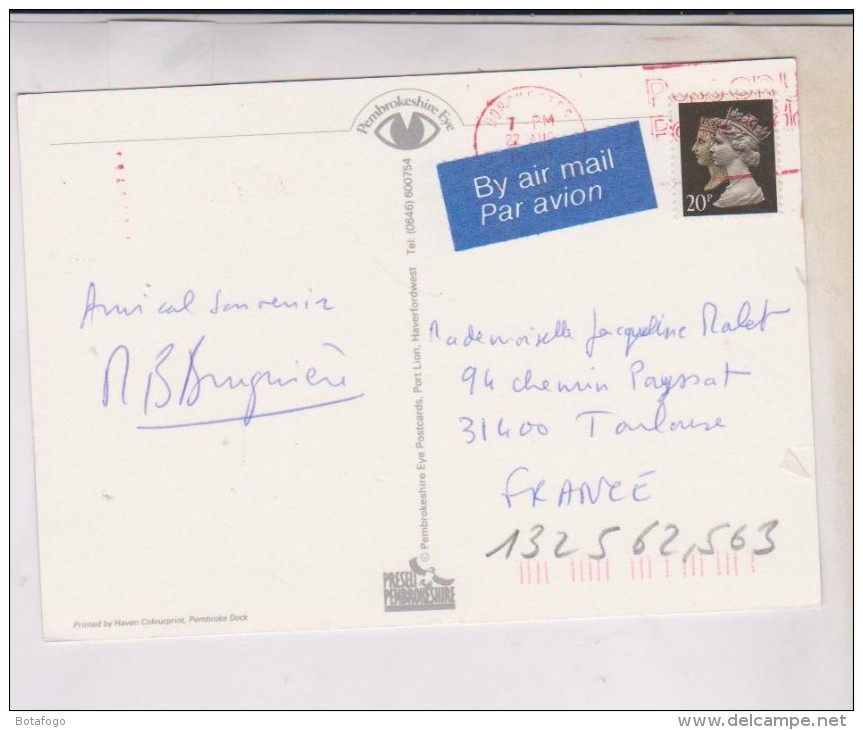 Pembrokeshire Eye
7 PM
22 AUG
By air mail
Par avion
20P
Amical souvenir
M B Bruguière
© Pembrokeshire Eye Postcards, Port Lion, Haverfordwest Tel: (0646) 600754
Mademoiselle Jacqueline Malet
94 chemin Payssat
31400 Toulouse
FRANCE
132562,563
PRESELI
PEMBROKESHIRE
Printed by Haven Colourprint, Pembroke Dock
Botafogo
www.delcampe.net